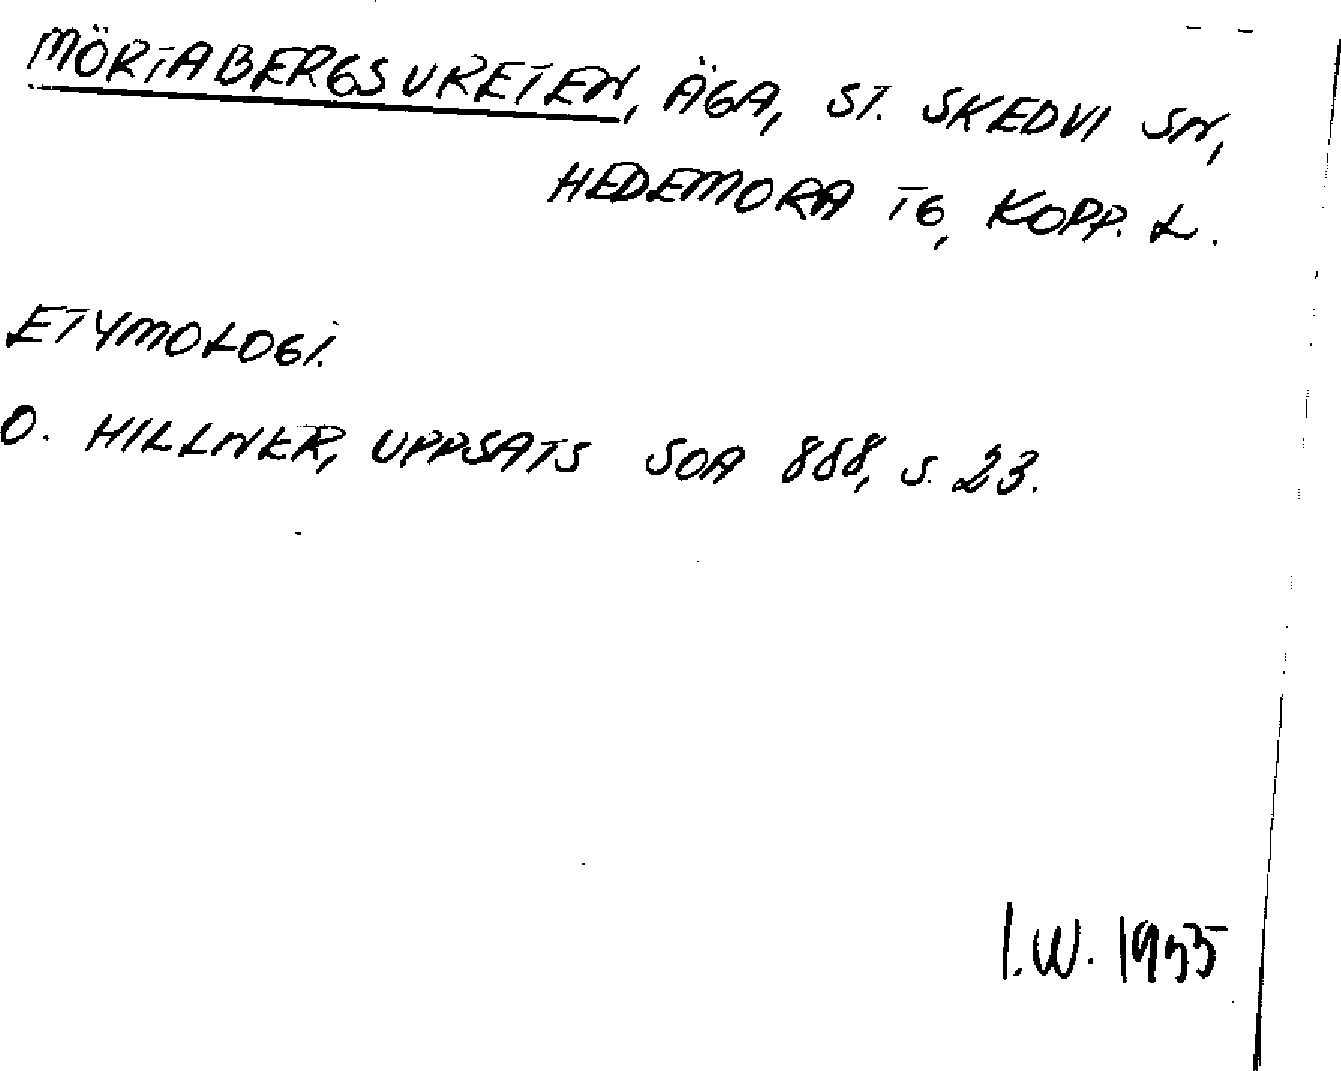 MÖRTABERGSURETEN, ÄGA, ST. SKEDVI SN,
HEDEMORA TG, KOPP. L.
ETYMOLOGI.
O. HILLNER, UPPSATS SOA 888, S. 23.
I.W. 1955